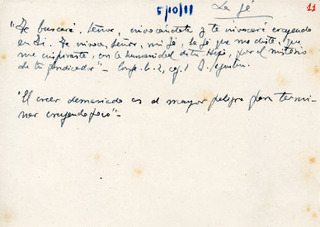 5/10/11 La fé 11
"Te buscaré, Señor, invocándote y te invocaré creyendo
en Ti. Te invoca, Señor, mi fé, la fé que me diste, que
me inspiraste, con la humanidad de tu Hijo, por el misterio
de tu predicador" - Conf. l. 1, c. 1 S. Agustín.
"El creer demasiado es el mayor peligro para termi-
nar creyendo poco" -